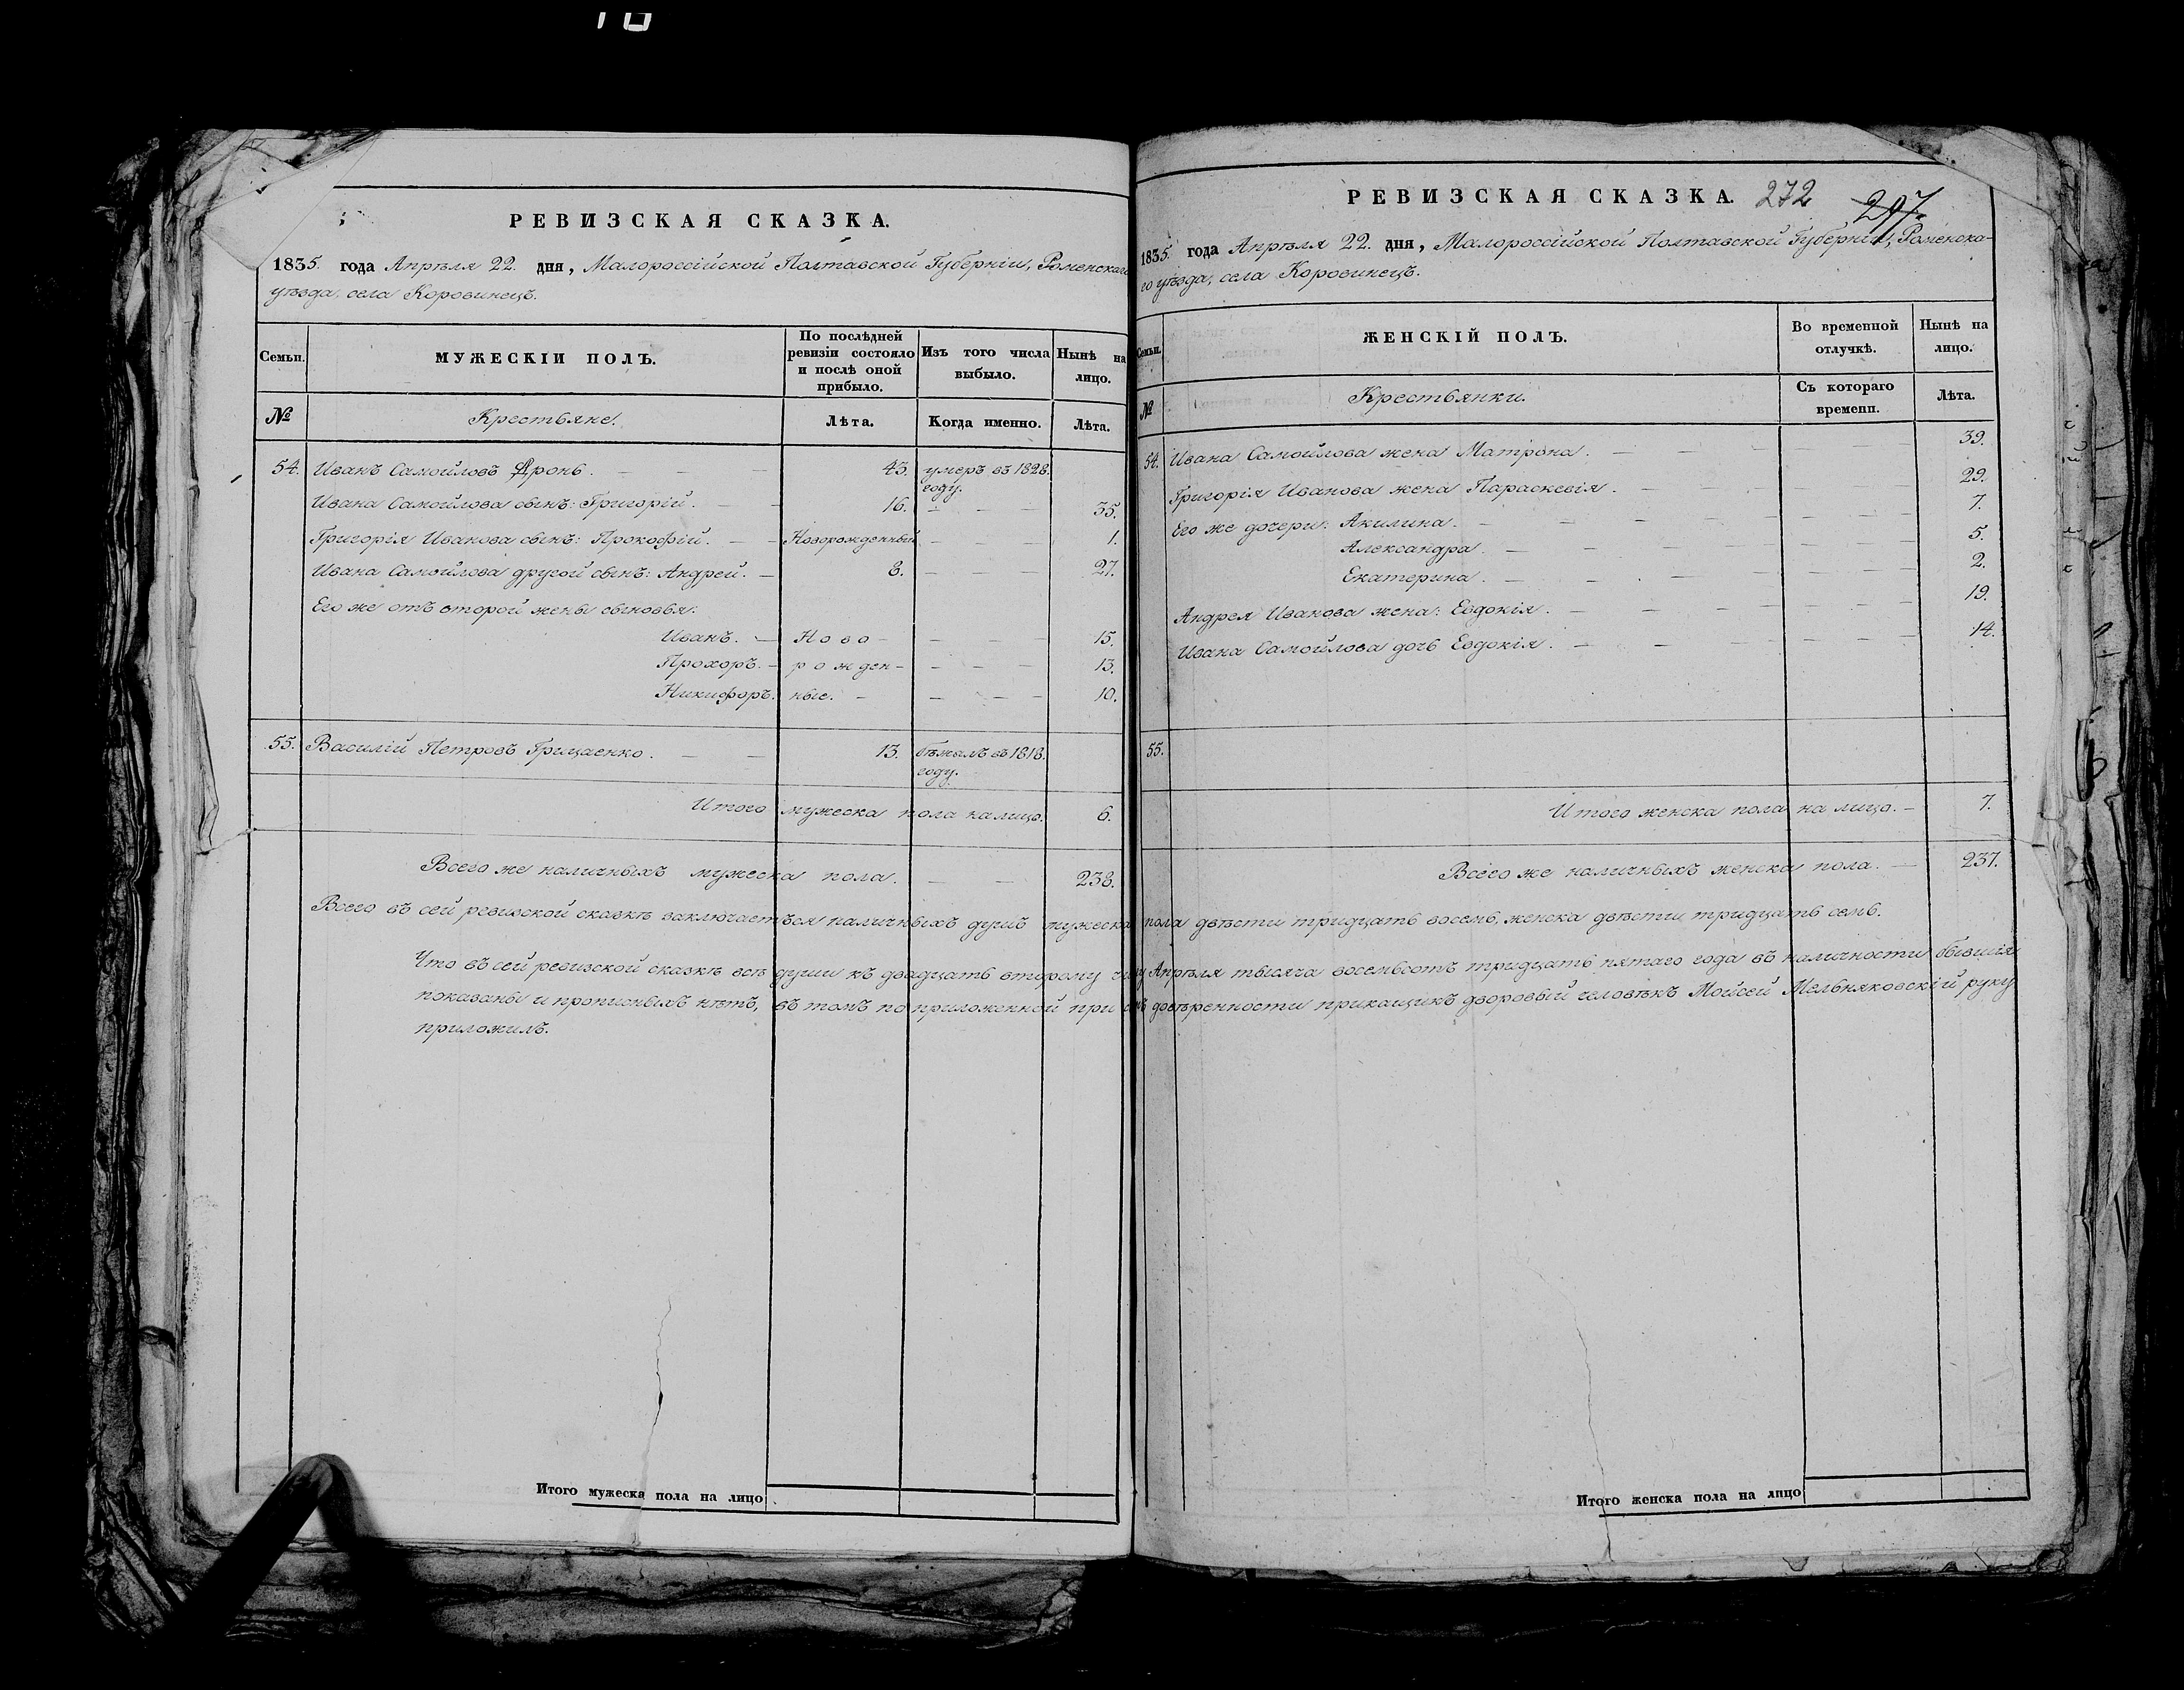 РЕВИЗСКАЯ СКАЗКА.
1835. года Апрѣля 22. дня, Малороссійской Полтавской Губерніи, Роменскаго
уѣзда, села Коровинецъ.
Семьи. МУЖЕСКІЙ ПОЛЪ. По послѣдней ревизіи состояло и послѣ оной прибыло. Изъ того числа выбыло. Нынѣ на лицо.
№ Крестьяне. Лѣта. Когда именно. Лѣта.
54. Иванъ Самойловъ Дронь. — — — 43. умеръ въ 1828.
году.
Ивана Самойлова сынъ: Григорій. — — 16. — — — 35.
Григорія Иванова сынъ: Прокофій. — — Новорожденный — — — 1.
Ивана Самойлова другой сынъ: Андрей. — 8. — — — 27.
Его же отъ второй жены сыновья:
Иванъ. — Ново- — — — 15.
Прохоръ. — рожден- — — — 13.
Никифоръ. ные. — — — — 10.
55. Василій Петровъ Грицаенко. — — 13. бѣжалъ въ 1818.
году.
Итого мужеска пола на лицо. 6.
Всего же наличныхъ мужеска пола. — — 238.
Всего въ сей ревизской сказкѣ заключается наличныхъ душъ мужеска пола двѣсти тридцать восемь, женска двѣсти тридцать семь.
Что въ сей ревизской сказкѣ всѣ души къ двадцать второму числу Апрѣля тысяча восемьсотъ тридцать пятаго года въ наличности бывшія
показаны и прописныхъ нѣтъ, въ томъ по приложенной при семъ довѣренности прикащикъ дворовый человѣкъ Мойсей Мельняковскій руку
приложилъ.
Итого мужеска пола на лицо
РЕВИЗСКАЯ СКАЗКА. 272 207.
1835. года Апрѣля 22. дня, Малороссійской Полтавской Губерніи, Роменска-
го уѣзда, села Коровинецъ.
Семьи. ЖЕНСКІЙ ПОЛЪ. Во временной отлучкѣ. Нынѣ на лицо.
№ Крестьянки. Съ котораго времени. Лѣта.
54. Ивана Самойлова жена Матрона. — — — — — 39.
Григорія Иванова жена Параскевія. — — — — — 29.
Его же дочери: Акилина. — — — — — 7.
Александра. — — — — — 5.
Екатерина. — — — — — 2.
Андрея Иванова жена: Евдокія. — — — — — 19.
Ивана Самойлова дочь Евдокія. — — — — — 14.
55.
Итого женска пола на лицо. — 7.
Всего же наличныхъ женска пола. — 237.
Итого женска пола на лицо